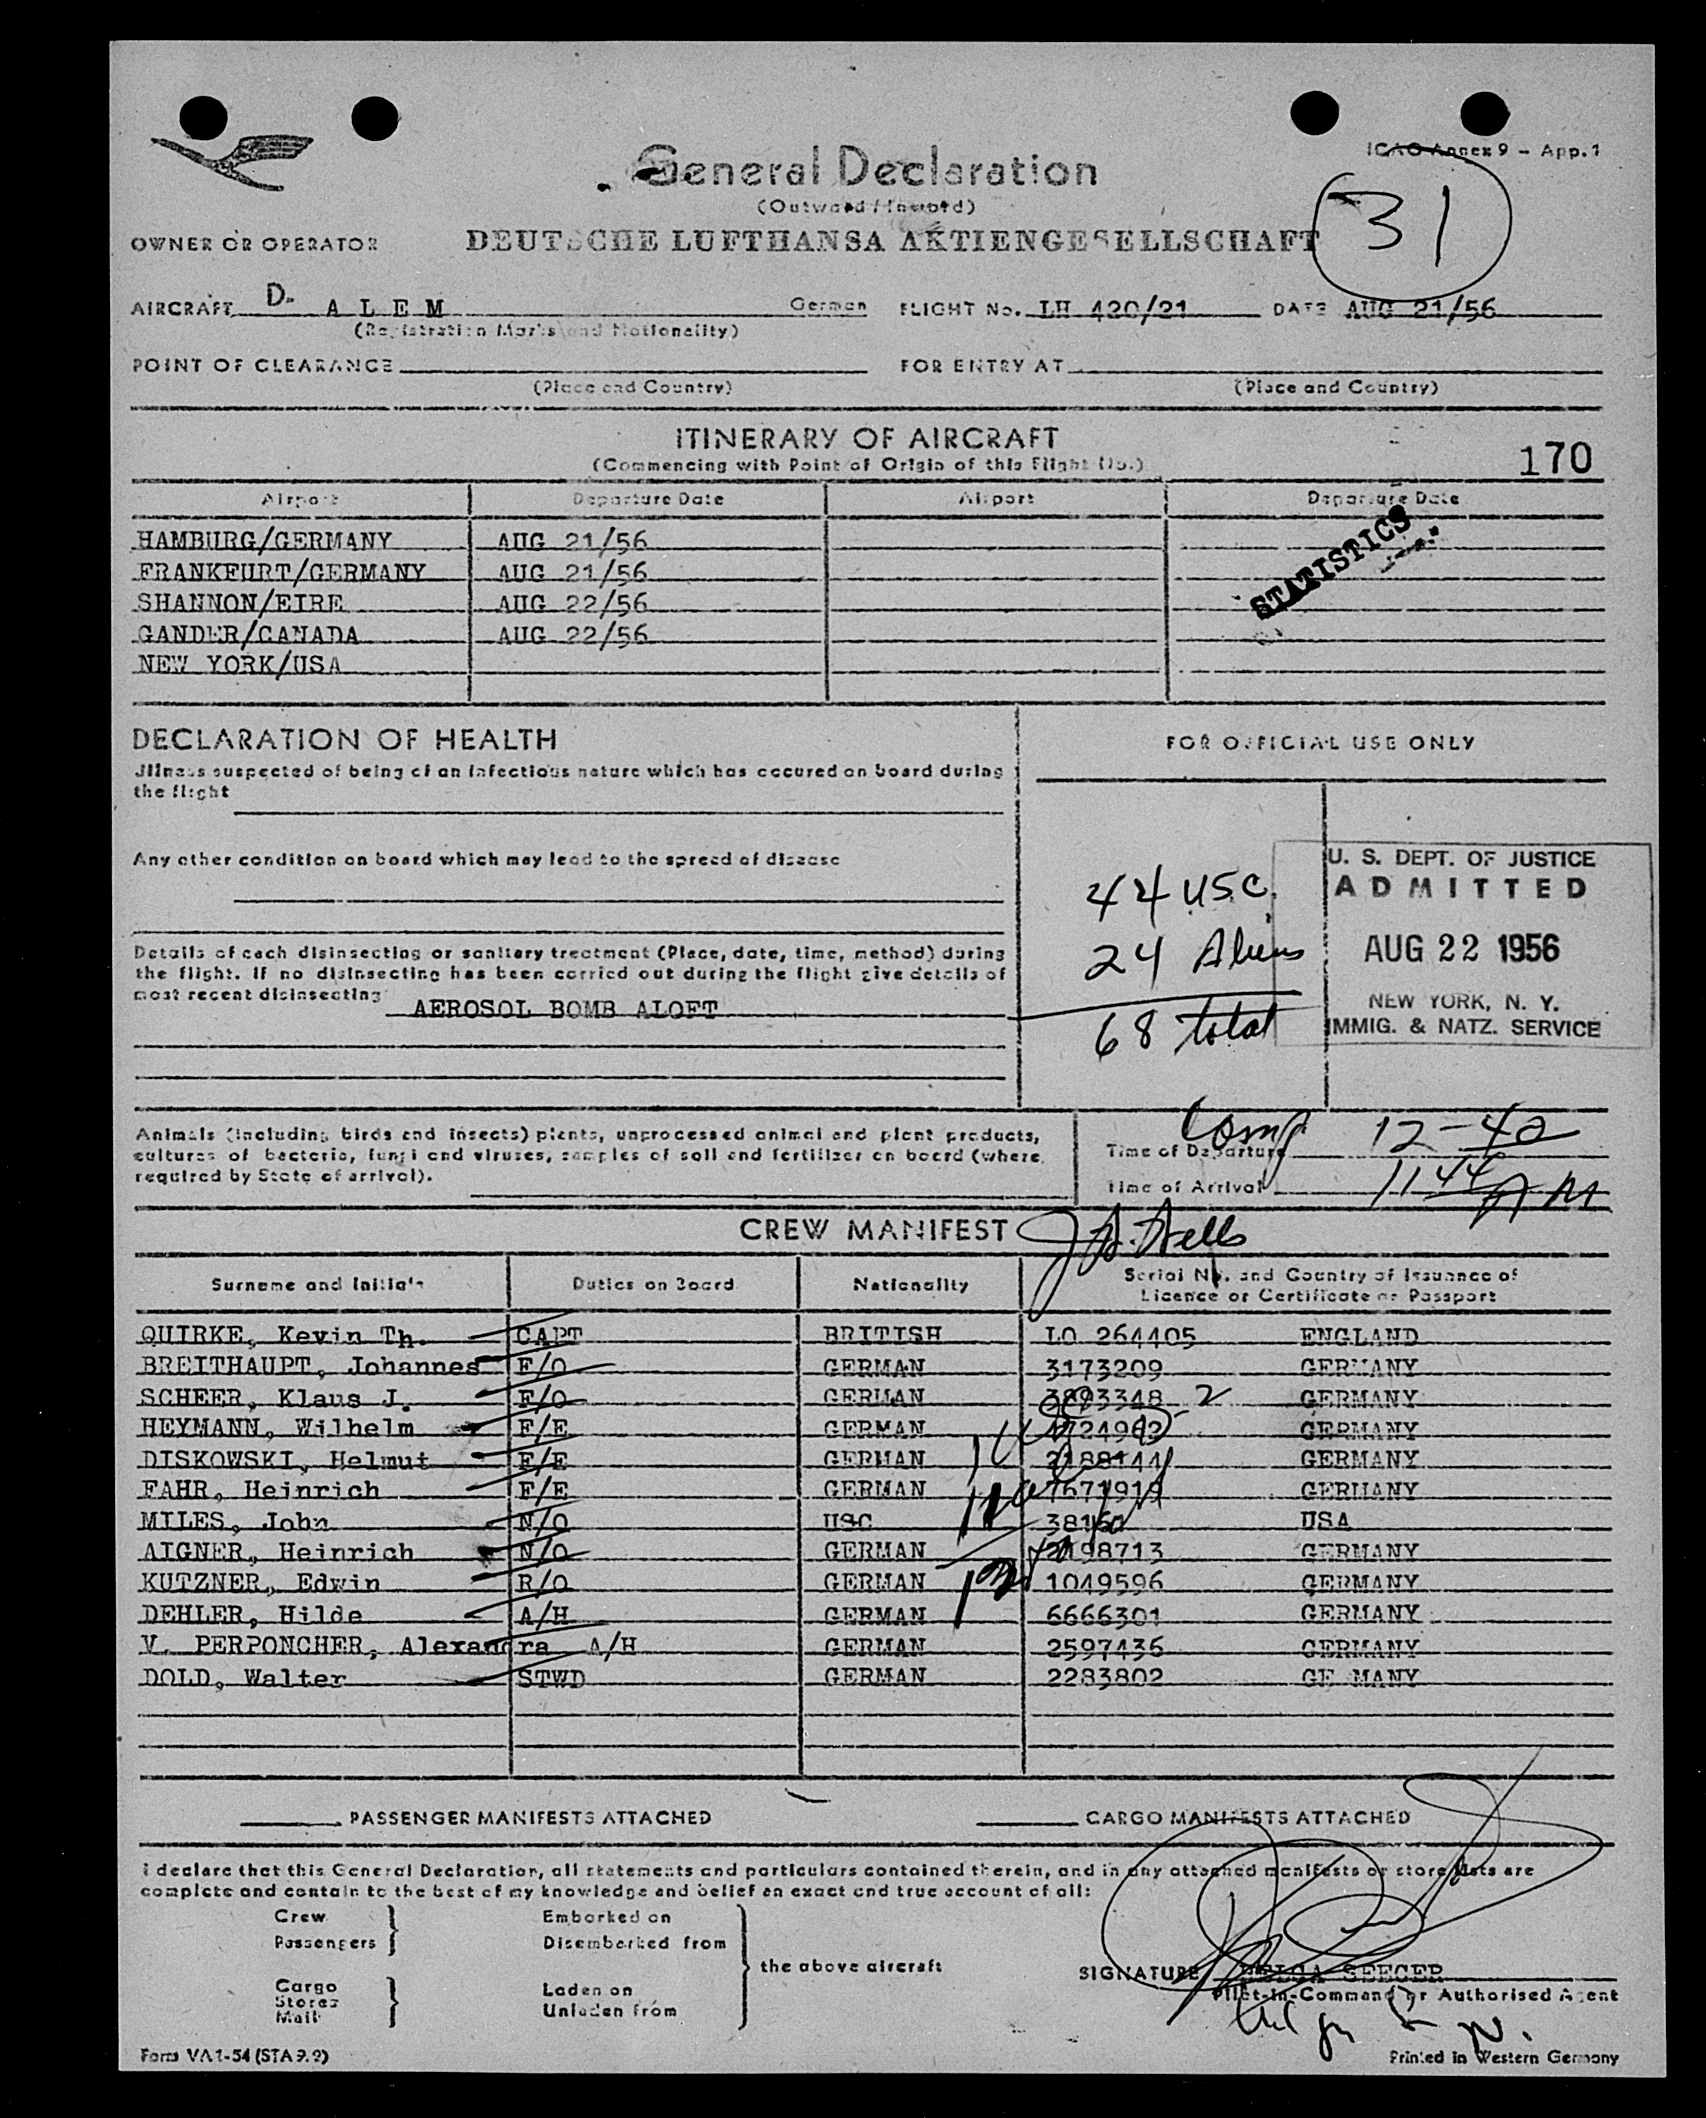 General Declaration
(Outward / Inward)
ICAO Annex 9 - App. 1
31
OWNER OR OPERATOR DEUTSCHE LUFTHANSA AKTIENGESELLSCHAFT
AIRCRAFT D- A L E M German FLIGHT No. LH 420/21 DATE AUG 21/56
(Registration Marks and Nationality)
POINT OF CLEARANCE FOR ENTRY AT
(Place and Country) (Place and Country)
ITINERARY OF AIRCRAFT
(Commencing with Point of Origin of this Flight No.)
170
Airport Departure Date Airport Departure Date
HAMBURG/GERMANY AUG 21/56
FRANKFURT/GERMANY AUG 21/56
SHANNON/EIRE AUG 22/56
GANDER/CANADA AUG 22/56
NEW YORK/USA
STATISTICS
DECLARATION OF HEALTH
Illness suspected of being of an infectious nature which has occured on board during
the flight
Any other condition on board which may lead to the spread of disease
Details of each disinsecting or sanitary treatment (Place, date, time, method) during
the flight. If no disinsecting has been carried out during the flight give details of
most recent disinsecting AEROSOL BOMB ALOFT
FOR OFFICIAL USE ONLY
44 USC
24 Aliens
68 total
U. S. DEPT. OF JUSTICE
ADMITTED
AUG 22 1956
NEW YORK, N. Y.
IMMIG. & NATZ. SERVICE
Animals (including birds and insects) plants, unprocessed animal and plant products,
cultures of bacteria, fungi and viruses, samples of soil and fertilizer on board (where
required by State of arrival).
Time of Departure Comp 12-42
Time of Arrival 1144 AM
CREW MANIFEST
Surname and Initials Duties on Board Nationality Serial No. and Country of Issuance of
Licence or Certificate or Passport
QUIRKE, Kevin Th. CAPT BRITISH LO 264405 ENGLAND
BREITHAUPT, Johannes F/O GERMAN 3173209 GERMANY
SCHEER, Klaus J. F/O GERMAN 3893348 2 GERMANY
HEYMANN, Wilhelm F/E GERMAN GERMANY
DISKOWSKI, Helmut F/E GERMAN GERMANY
FAHR, Heinrich F/E GERMAN 7671919 GERMANY
MILES, John N/O USC USA
AIGNER, Heinrich N/O GERMAN 2198713 GERMANY
KUTZNER, Edwin R/O GERMAN 1049596 GERMANY
DEHLER, Hilde A/H GERMAN 6666301 GERMANY
V. PERPONCHER, Alexandra A/H GERMAN 2597436 GERMANY
DOLD, Walter STWD GERMAN 2283802 GE MANY
PASSENGER MANIFESTS ATTACHED CARGO MANIFESTS ATTACHED
I declare that this General Declaration, all statements and particulars contained therein, and in any attached manifests or store lists are
complete and contain to the best of my knowledge and belief an exact and true account of all:
Crew Embarked on
Passengers Disembarked from
the above aircraft
Cargo Laden on
Stores Unladen from
Mail
SIGNATURE HELGA SEEGER
Pilot-in-Command or Authorised Agent
Form VA1-54 (STA 9.9)
Printed in Western Germany